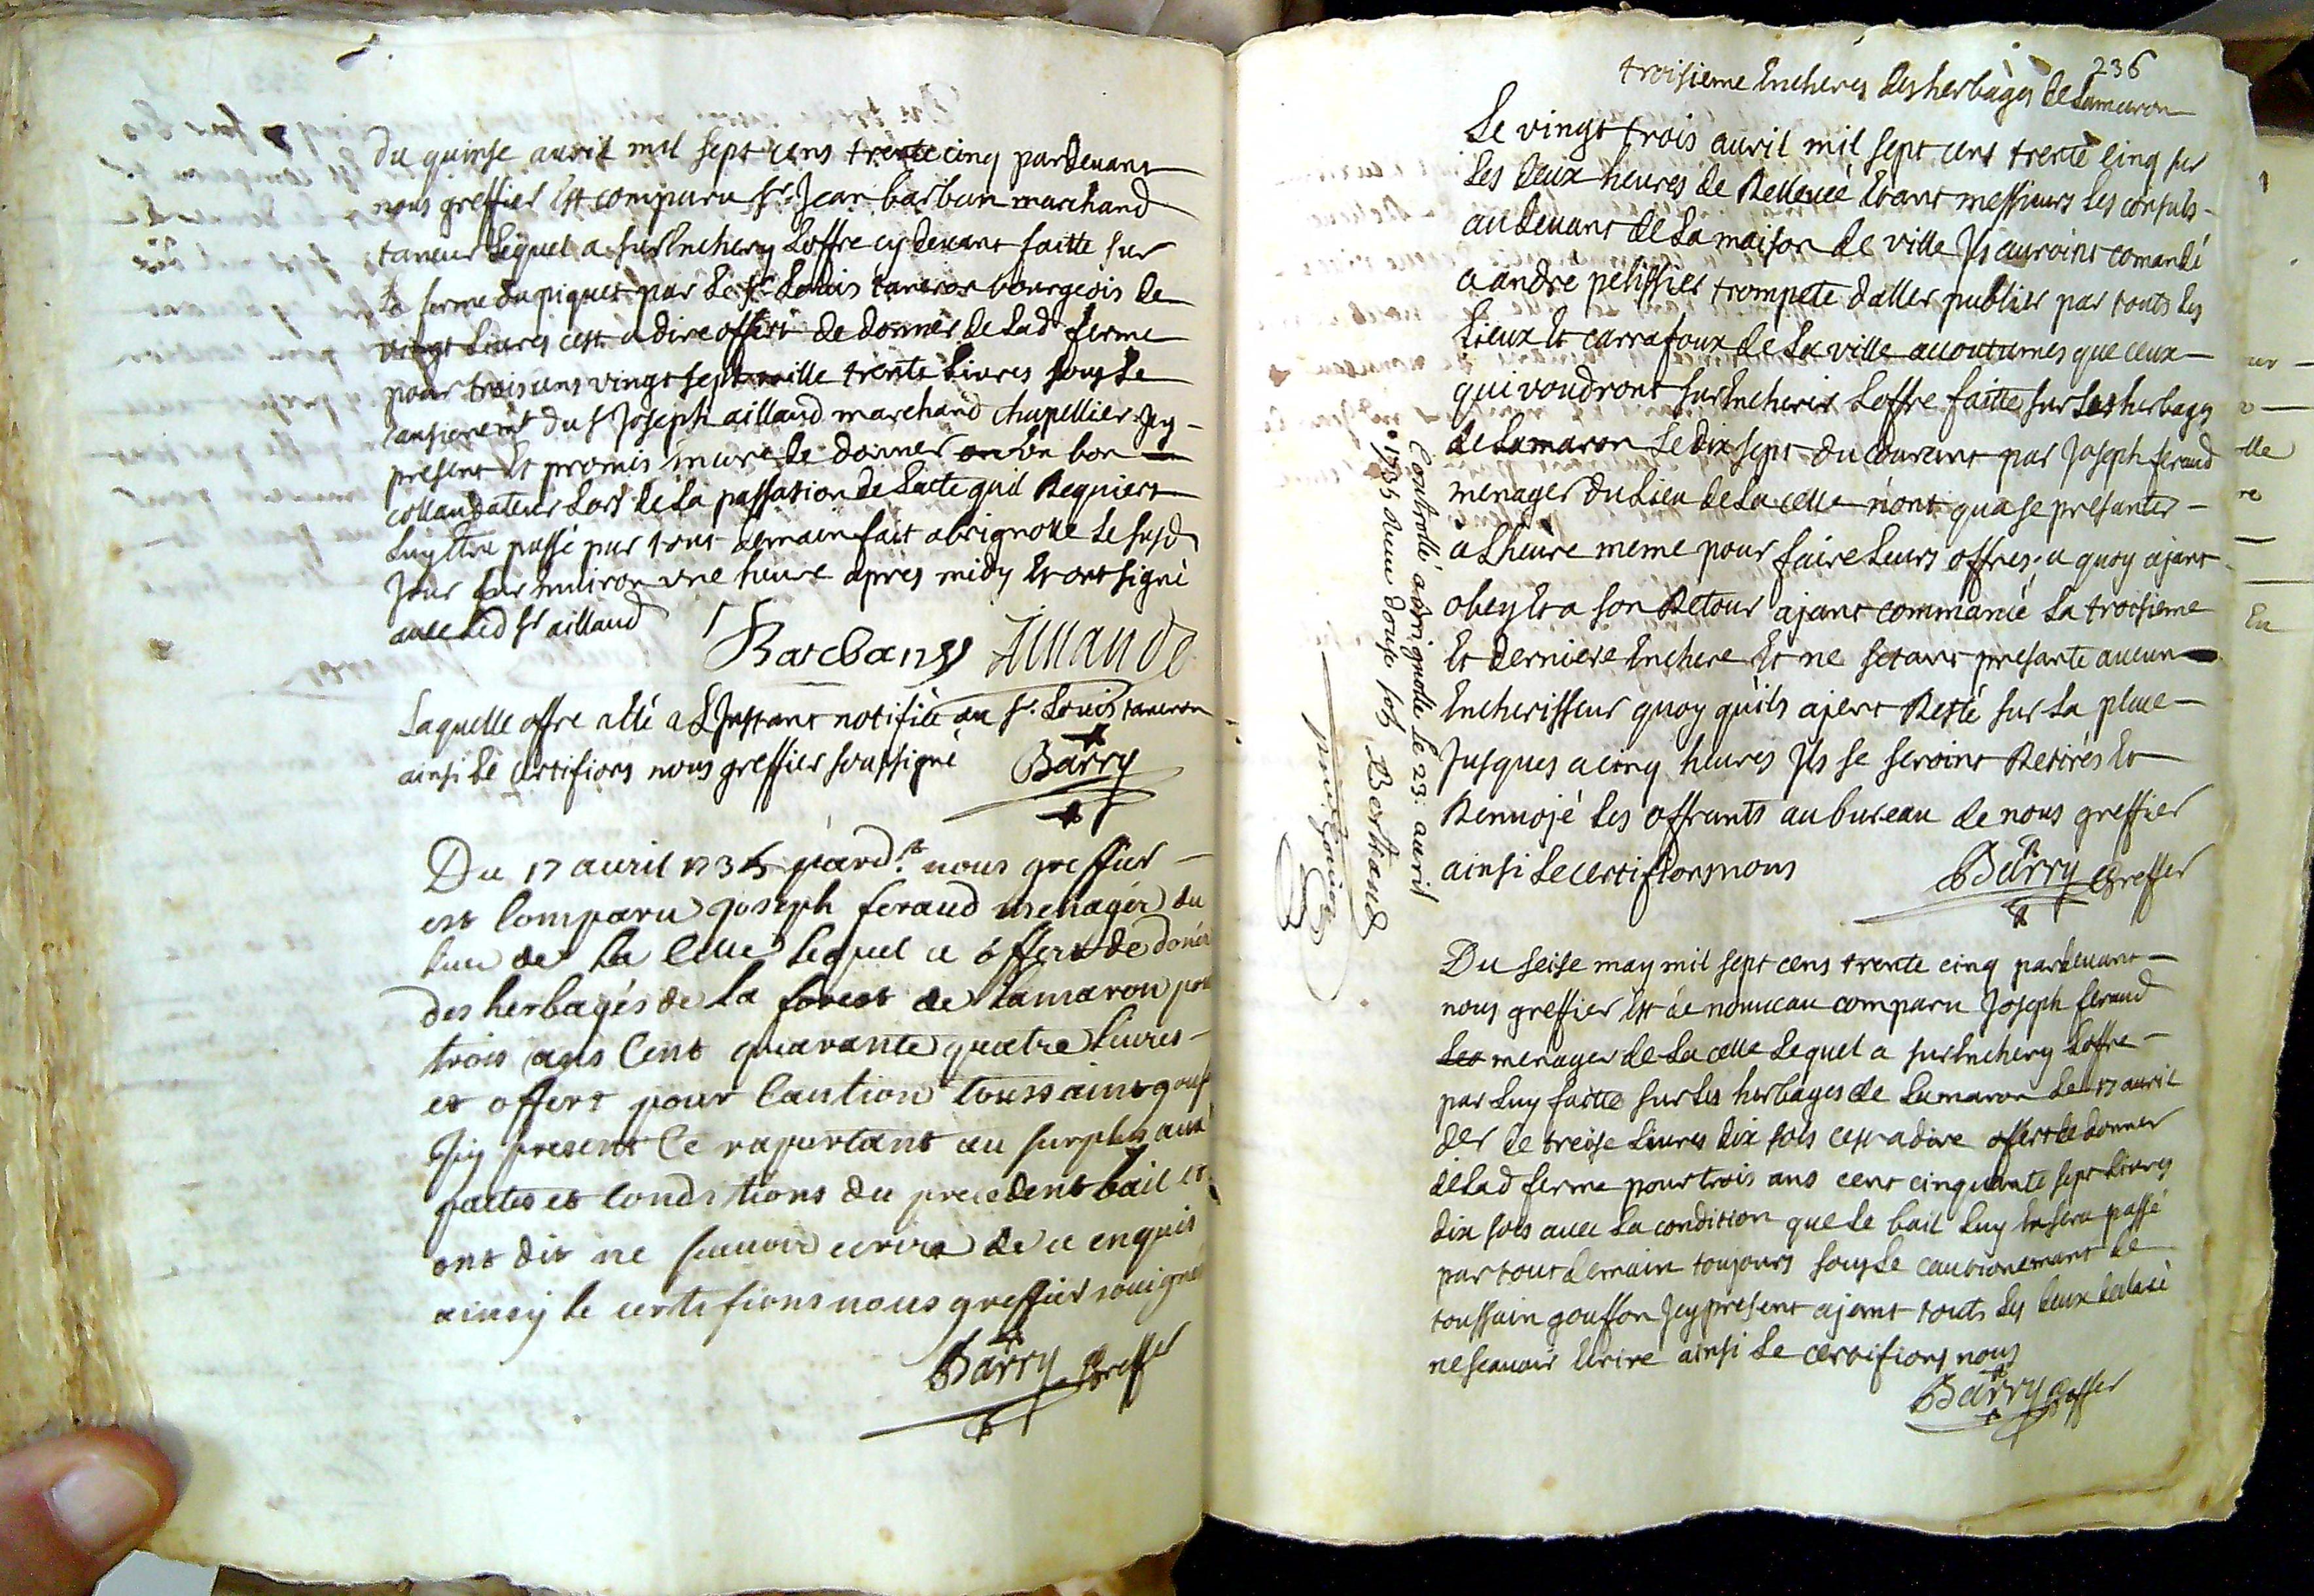 du quinse avril mil sept cens trente cinq pardevant
nous greffier Est comparu Sr. Jean barban marchand
taneur Lequel a surEnchery Loffre cy devant faitte sur
la ferme du piquet par Le Sr Louis taneron bourgeois de
vingt Livres cest a dire offert de donner de Lad ferme
pour trois ans vingt sept mille trente Livres sous Le
cautionemt du Sr Joseph aillaud marchand chapellier Jcy
present Et promis de donner un bon
collaudateur Lors de La passation de Lacte quil Requiert
Luy Etre passé par tout demain fait a brignolle Le susd
Jour sur Environ une heure apres midy Et ont signé
avec Led Sr aillaud
Barbany Aillaud
Laquelle offre a Eté a LJnstant notifiée au Sr. Louis taneron
ainsi Le certifions nous greffier soussigné Barry
Du 17 avril 1735 pardt. nous greffier
est Comparu Joseph feraud menager du
lieu de la Celle lequel a offert de doner
des herbages de la forest de Lamaron pour
trois ans Cent quarante quatre livres
et offert pour Caution toussaint gouf
Jcy present Ce raportant au surplus aux
pactes et Conditions du precedent bail et
ont dit ne scavoir ecrire de ce enquis
ainsy le certifions nous greffier souigné
Barry Greffer
236
troisieme Encheres des herbages de Lamaron
Le vingt trois avril mil sept cent trente cinq sur
Les deux heures de Rellevée Etant messieurs Les consuls
au devant de La maison de ville Jls auroint comandé
a andré pelissier trompete daller publier par touts Les
Lieux Et carrafoux de La ville accoutumes que ceux
qui voudront surEncherir Loffre faitte sur Les herbages
de Lamaron Le dix sept du courant par Joseph feraud
menager du Lieu de La celle nont qua se presanter
a Lheure meme pour faire Leurs offres, a quoy ajant
obey Et a son Retour ajant commancé La troisieme
Et derniere Enchere Et ne setant presanté aucun
Encherisseur quoy quils ajent Resté sur La place
Jusques a cinq heures Jls se seroint Retirés Et
Renvojé Les offrants au bureau de nous greffier
ainsi Le certifions nous Barry Greffer
Controllé a brignolle le 23: avril
1735 douse sols Bertrand
Du seise may mil sept cens trente cinq pardevant
nous greffier Est de nouveau comparu Joseph feraud
Les menager de La celle Lequel a surEnchery Loffre
par Luy faitte sur Les herbages de Lamaron Le 17 avril
der de treise Livres dix sols cest a dire offert de donner
de Lad ferme pour trois ans cent cinquante sept Livres
dix sols avec La condition que Le bail Luy En sera passé
par tout demain toujours sous Le cautionemant de
toussain gouffon Jcy present ajant touts Les deux declaré
ne scavoir Ecrire ainsi Le certifions nous
Barry Greffer